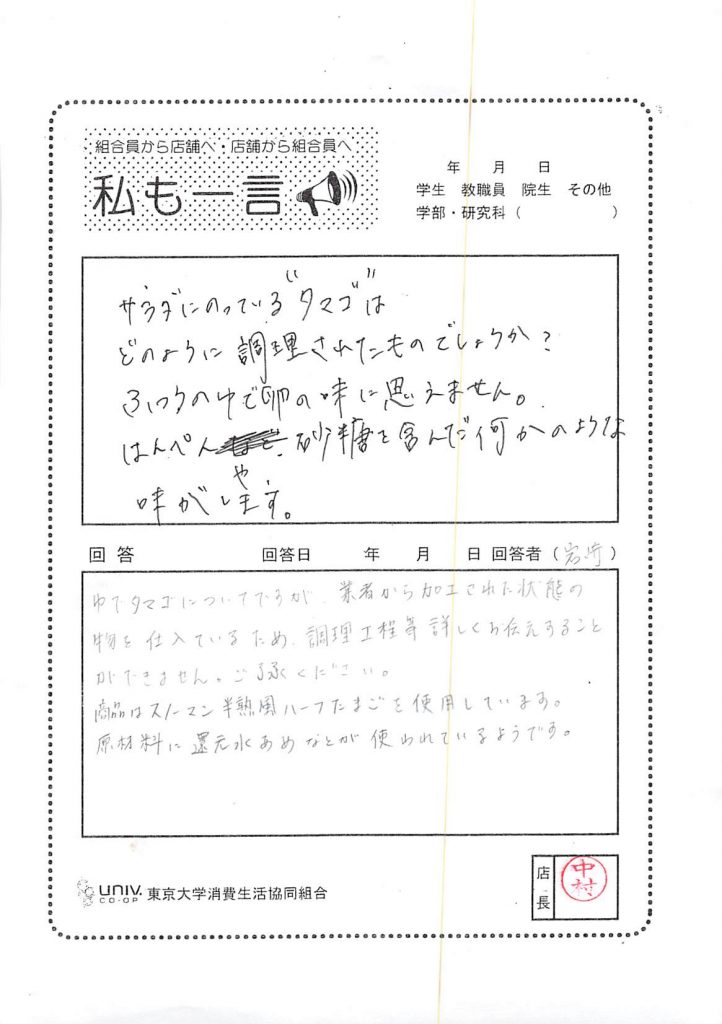 組合員から店舗へ・店舗から組合員へ
私も一言
年 月 日
学生 教職員 院生 その他
学部・研究科（ ）
サラダにのっている“タマゴ”は
どのように調理されたものでしょうか？
ふつうのゆで卵の味に思えません。
はんぺんや砂糖を含んだ何かのような
味がします。
回答 回答日 年 月 日 回答者（岩崎）
ゆでタマゴについてですが、業者から加工された状態の
物を仕入ているため、調理工程等詳しくお伝えすること
ができません。ご了承ください。
商品はスノーマン半熟風ハーフたまごを使用しています。
原材料に還元水あめなどが使われているようです。
UNIV. CO-OP 東京大学消費生活協同組合
店長
中村